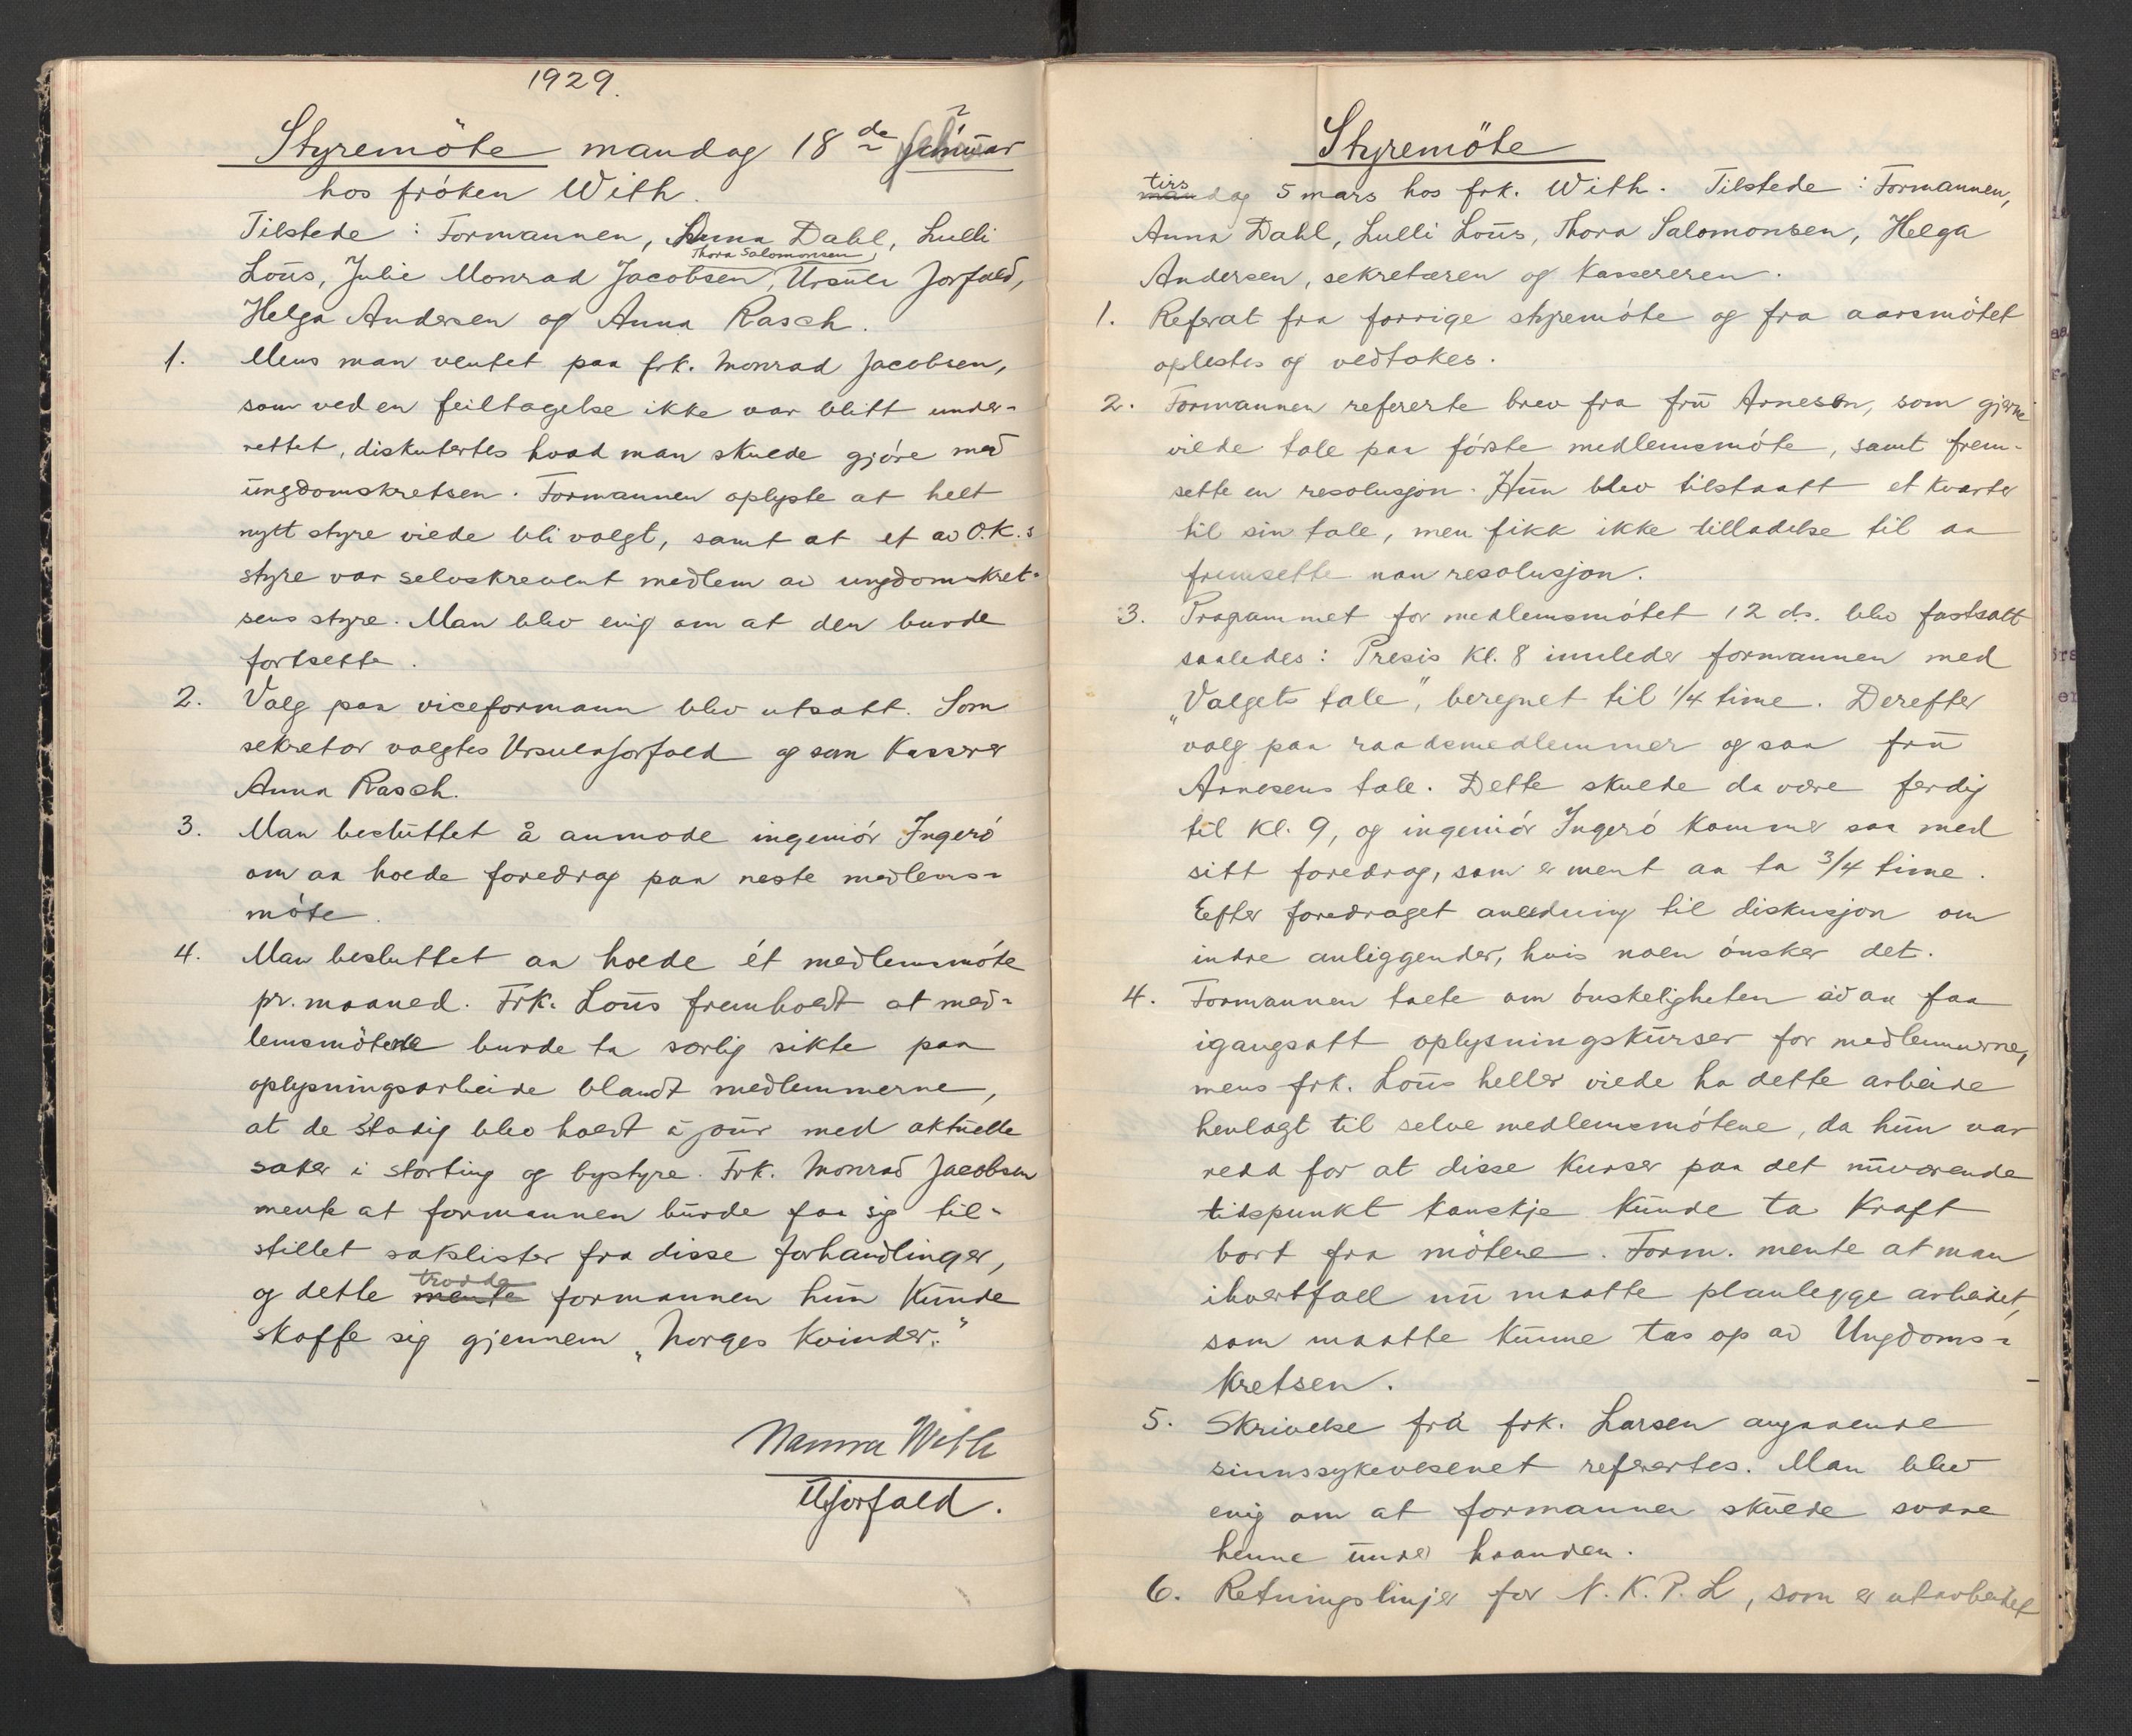 1929.
Styremöte mandag 18de
hos fröken With.
Tilstede : Formannen, Anna Dahl, Lulli
Thora Salomonsen,
Loüs, Julie Monrad Jacobsen, Ursula Jorfald,
Helga Andersen og Anna Rasch.
1. Mens man ventet paa frk. Monrad Jacobsen,
som ved en feiltagelse ikke var blitt under-
rettet, diskutertes hvad man skulde gjöre med
ungdomskretsen. Formannen oplyste at helt
nytt styre vilde bli valgt, samt at et av O.K.s
styre var selvskrevent medlem av ungdomskret-
sens styre. Man blev enig om at den burde
fortsette.
2. Valg paa viceformann blev utsatt. Som
sekretær valgtes Ursula Jorfald og som kasserer
Anna Rasch.
3. Man besluttet å anmode ingeniör Ingerö
om aa holde foredrag paa neste medlems-
möte.
4. Man besluttet aa holde ét medlemsmöte
pr. maaned. Frk. Loüs fremholdt at med-
lemsmötene burde ta særlig sikte paa
oplysningsarbeide blandt medlemmerne,
at de stadig blev holdt à jour med aktuelle
saker i storting og bystyre. Frk. Monrad Jacobsen
mente at formannen burde faa sig til-
stillet sakslister fra disse forhandlinger,
trodde
og dette mente formannen hun kunde
skaffe sig gjennem „Norges Kvinder."
Nanna With
UJorfald.
Styremöte
tirs
mandag 5 mars hos frk. With. Tilstede : Formannen,
Anna Dahl, Lulli Loüs, Thora Salomonsen, Helga
Andersen, sekretæren og kassereren.
1. Referat fra forrige styremöte og fra aarsmötet
oplestes og vedtokes.
2. Formannen refererte brev fra fru Arnesen, som gjerne
vilde tale paa förste medlemsmöte, samt frem-
sette en resolusjon. Hun blev tilstaatt et kvarter
til sin tale, men fikk ikke tilladelse til aa
fremsette noen resolusjon.
3. Programmet for medlemsmötet 12 ds. blev fastsatt
saaledes : Presis kl. 8 innleder formannen med
„Valgets tale", beregnet til 1/4 time. Derefter
valg paa raadsmedlemmer og saa fru
Arnesens tale. Dette skulde da være ferdig
til kl. 9, og ingeniör Ingerö kommer saa med
sitt foredrag, som er ment aa ta 3/4 time.
Efter foredraget anledning til diskusjon om
indre anliggender, hvis noen önsker det.
4. Formannen talte om önskeligheten av aa faa
igangsatt oplysningskurser for medlemmerne,
mens frk. Loüs heller vilde ha dette arbeide
henlagt til selve medlemsmötene, da hun var
redd for at disse kurser paa det nuværende
tidspunkt kanskje kunde ta kraft
bort fra mötene. Form. mente at man
ihvertfall nu maatte planlegge arbeidet,
som maatte kunne tas op av Ungdoms-
kretsen.
5. Skrivelse fra frk. Larsen angaaende
sinnssykevesenet refertes. Man blev
enig om at formannen skulde svare
henne under haanden.
6. Retningslinjer for N. K. P. L, som er utarbeidet